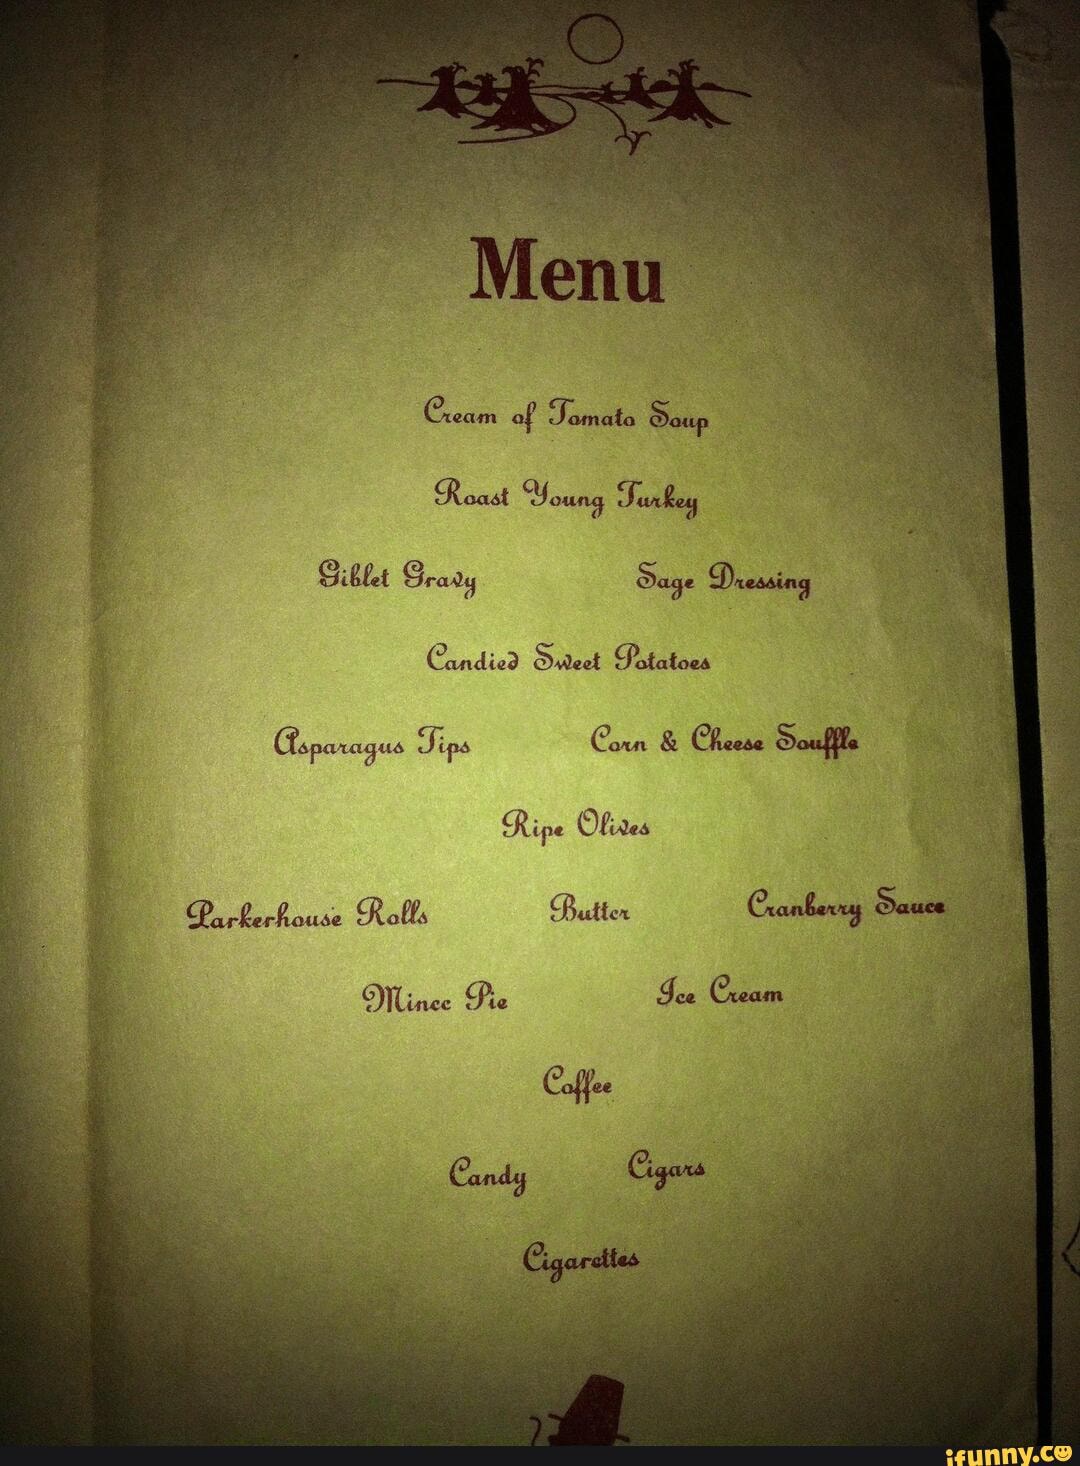 Menu
Cream of Tomato Soup
Roast Young Turkey
Giblet Gravy Sage Dressing
Candied Sweet Potatoes
Asparagus Tips Corn & Cheese Souffle
Ripe Olives
Parkerhouse Rolls Butter Cranberry Sauce
Mince Pie Ice Cream
Coffee
Candy Cigars
Cigarettes
ifunny.co